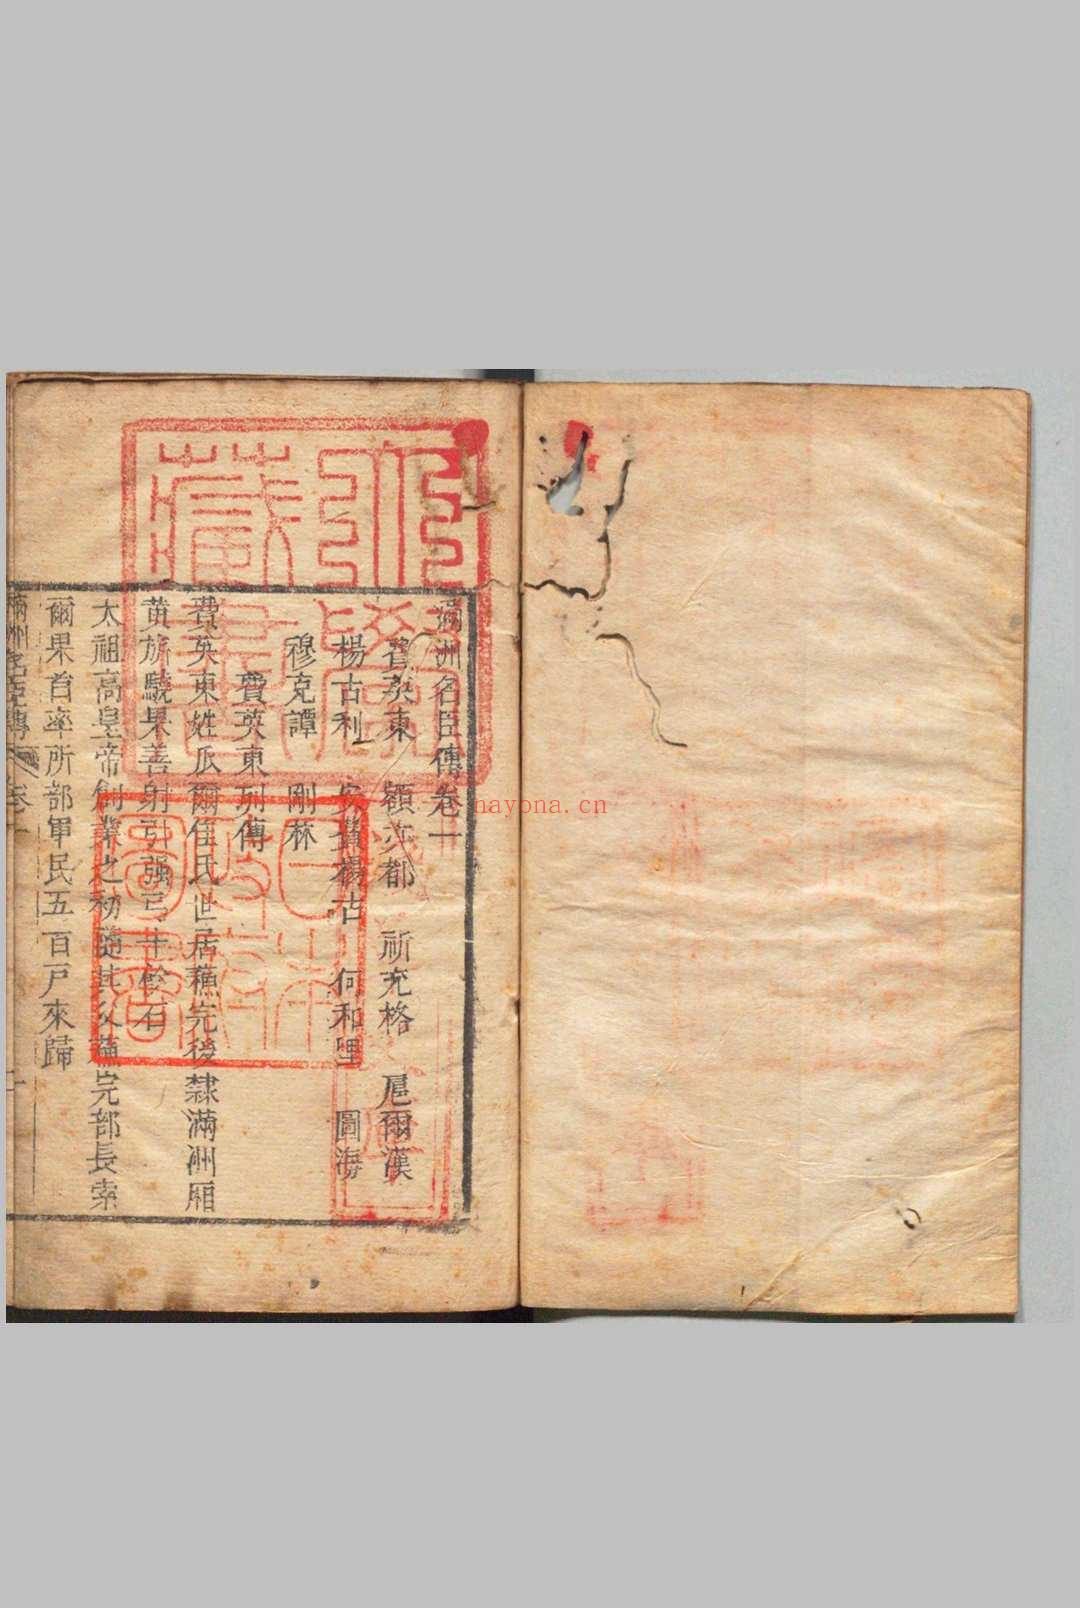 滿洲名臣傳卷一
費英東 額亦都 祈充格 扈爾漢
楊古利 安費揚古 何和哩 圖海
穆克譚 剛林
費英東列傳
費英東姓瓜爾佳氏世居蘇完後隸滿洲廂
黃旂驍果善射引强弓十餘石
太祖高皇帝創業之初隨其父蘇完部長索
爾果首率所部軍民五百戶來歸
滿州名臣傳 卷一 一
nayona.cn